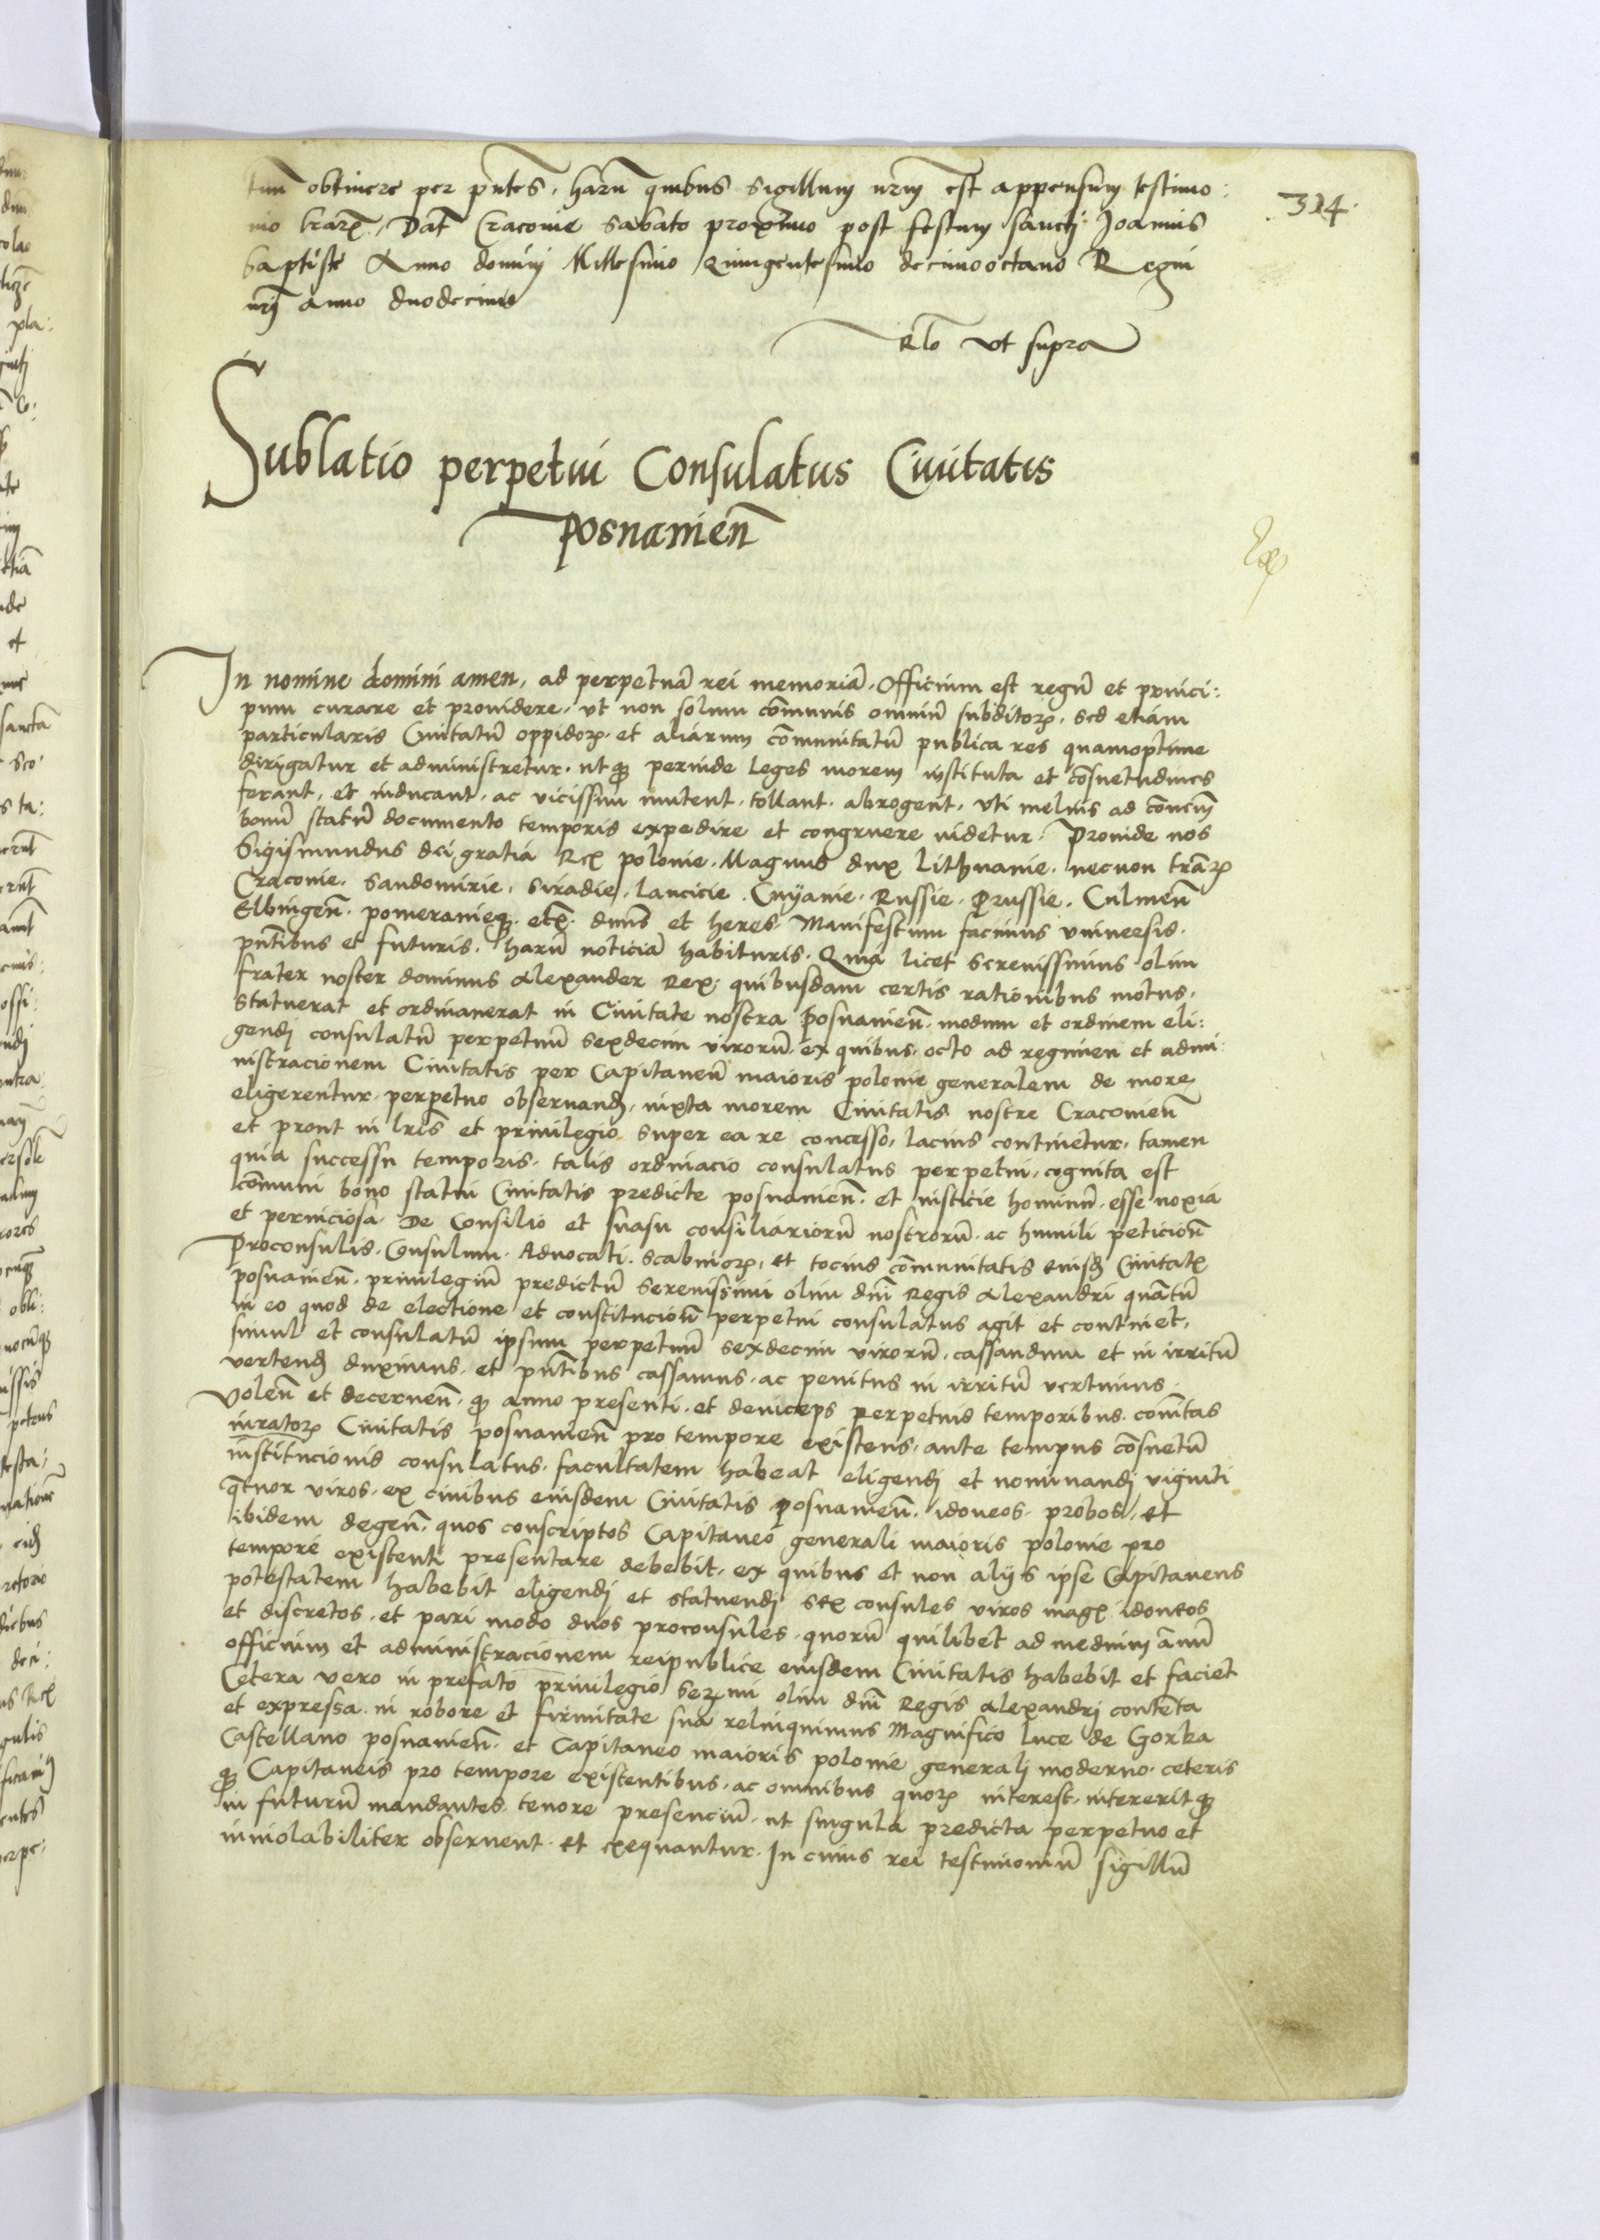 tum obtinere per pntes, harum quibus sigillum nrm est appensum testimo:
nio lrarum. Dat Cracovie Sabato proximo post festum sancti Joannis
baptiste Anno domini Millesimo Quingentesimo decimooctavo Regni
nri anno duodecimo
Rlo ut supra
314.
Sublatio perpetui Consulatus Civitatis
Posnanien
In nomine domini amen, ad perpetuā rei memoriā. Officium est regū et princi:
pum curare et providere, ut non solum cōmunis omniū subditorꝝ, sed etiam
particularis Civitatū oppidorꝝ. et aliarum cōmunitatū publica res quamoptime
dirigatur et administretur. utqꝫ perinde leges morem instituta et cōsuetudines
ferant, et inducant, ac vicissim mutent, tollant, abrogent, uti melius ad cōmunem
bonū statū documento temporis expedire et congruere videtur. Proinde nos
Sigismundus dei gratia Rex polonie. Magnus dux Lithuanie. necnon trarꝝ
Cracovie. Sandomirie. Siradie. Lancicie. Cuyavie. Russie. Prussie. Culmen
Elbingen. pomeranieqꝫ. etc. dnus et heres. Manifestum facimus universis.
pntibus et futuris. harū noticiā habituris. Quia licet serenissimus olim
frater noster dominus Alexander Rex, quibusdam certis rationibus motus,
statuerat et ordinaverat in Civitate nostra Posnanien. modum et ordinem eli:
gendi consulatū perpetuū sexdecim virorū. ex quibus. octo ad regimen et admi:
nistracionem Civitatis per Capitaneū maioris polonie generalem de more
eligerentur. perpetuo observand, iuxta morem Civitatis nostre Cracovien
et prout in lris et privilegio super ea re concesso, lacius continetur, tamen
quia successu temporis. talis ordinacio consulatus perpetui, cognita est
cōmuni bono statui Civitatis predicte posnanien. et iusticie hominū. esse noxia
et perniciosa. De Consilio et suasu consiliariorū nostrorū. ac humili peticione
Proconsulis. Consulum. Advocati. Scabinorꝝ, et tocius cōmunitatis eiusdem Civitatis
posnanien. privilegiū predictū serenissimi olim dni Regis Alexandri quātū
in eo quod de electione et constitucione perpetui consulatus agit et continet,
simul et consulatū ipsum perpetuū sexdecim virorū. cassandum et in irritū
vertend duximus. et pntibus cassamus. ac penitus in irritū vertimus.
Volen et decernen. qꝫ anno presenti. et deinceps perpetuis temporibus. cōmunitas
iuratorꝝ Civitatis posnanien pro tempore existens, ante tempus cōsuetū
institucionis consulatus, facultatem habeat eligendi et nominandi viginti
quatuor viros. ex civibus eiusdem Civitatis Posnanien. idoneos. probos, et
ibidem degen. quos conscriptos Capitaneo generali maioris polonie pro
tempore existenti presentare debebit. ex quibus et non aliis ipse Capitaneus
potestatem habebit eligendi et statuendi sex consules viros magis idoneos
et discretos. et pari modo duos proconsules. quorū quilibet ad medium annū
officium et administracionem reipublice eiusdem Civitatis habebit et faciet
Cetera vero in prefato privilegio sermi olim dni Regis Alexandri contenta
et expressa. in robore et firmitate sua relinquimus Magnifico Luce de Gorka
Castellano posnanien. et Capitaneo maioris polonie generali moderno. ceteris
qꝫ Capitaneis pro tempore existentibus. ac omnibus quorꝝ interest. intereritqꝫ
in futurū mandantes. tenore presenciū. ut singula predicta perpetuo et
inviolabiliter observent. et exequantur. In cuius rei testimoniū sigillū